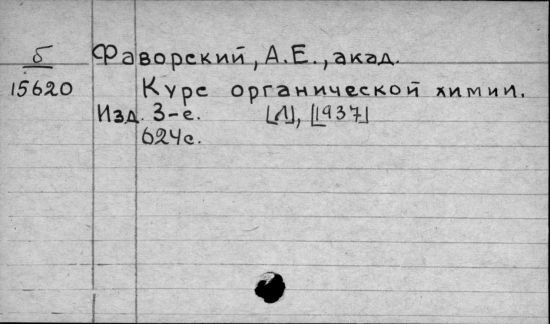 б Фаворский, А.Е., акад.
15620 Курс органической химии.
Изд. 3-е. [Л], [1937]
624с.